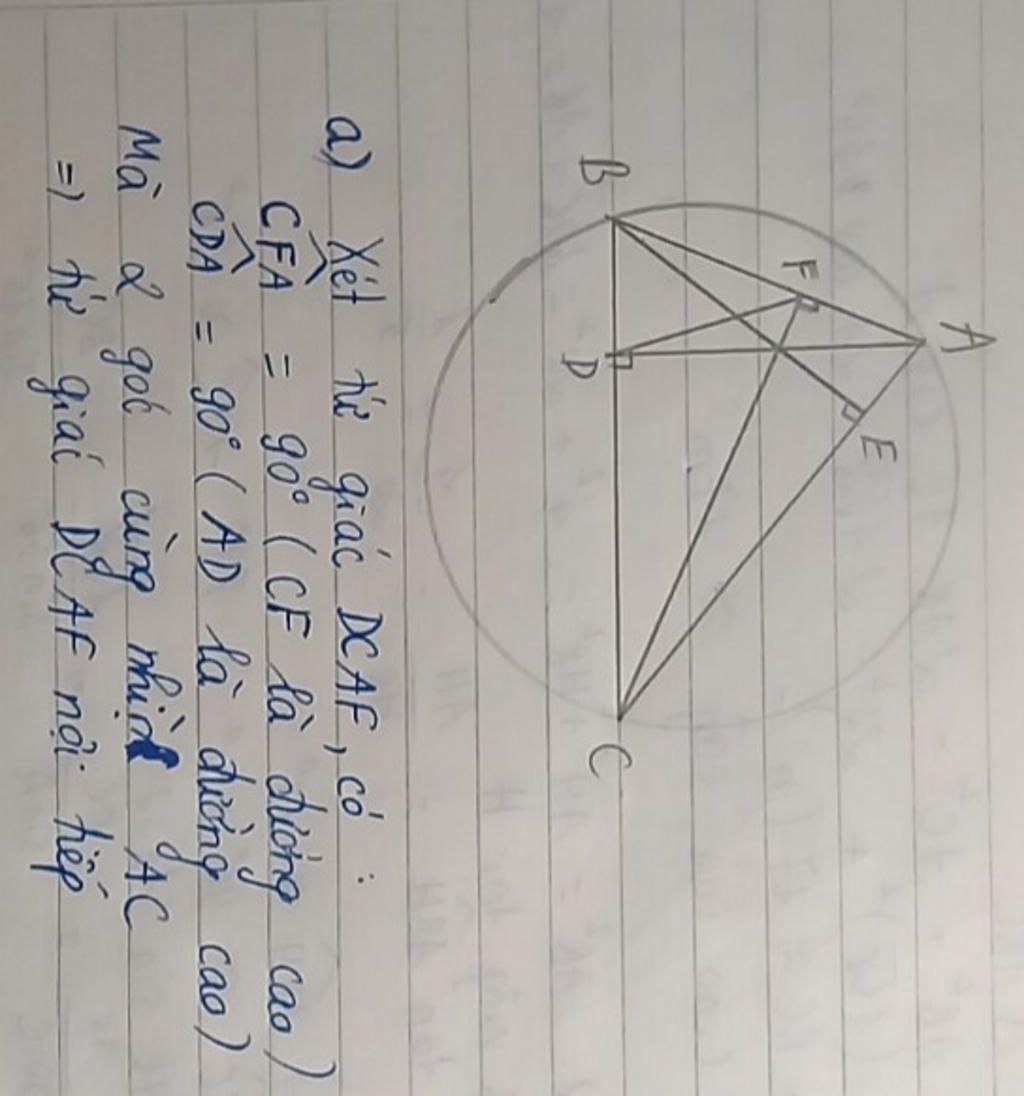 A
F
E
B
D
C
a) Xét tứ giác DCAF, có :
CFA = 90° (CF là đường cao)
CDA = 90° (AD là đường cao)
Mà 2 góc cùng nhìn AC
=) tứ giác DCAF nội tiếp